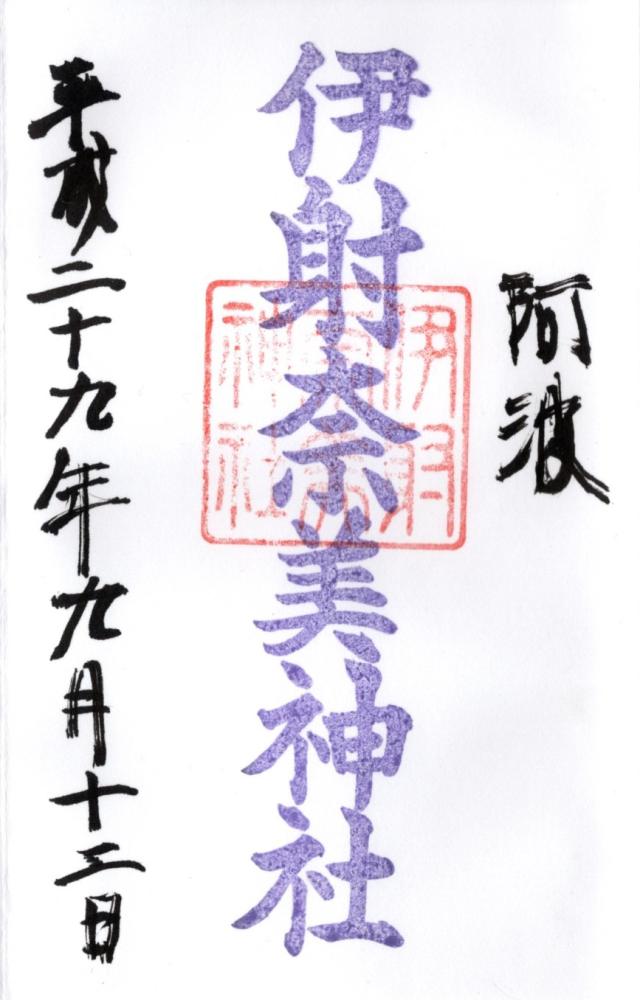 阿波
伊射奈美神社
伊射
奈美
神社
平成二十九年九月十二日